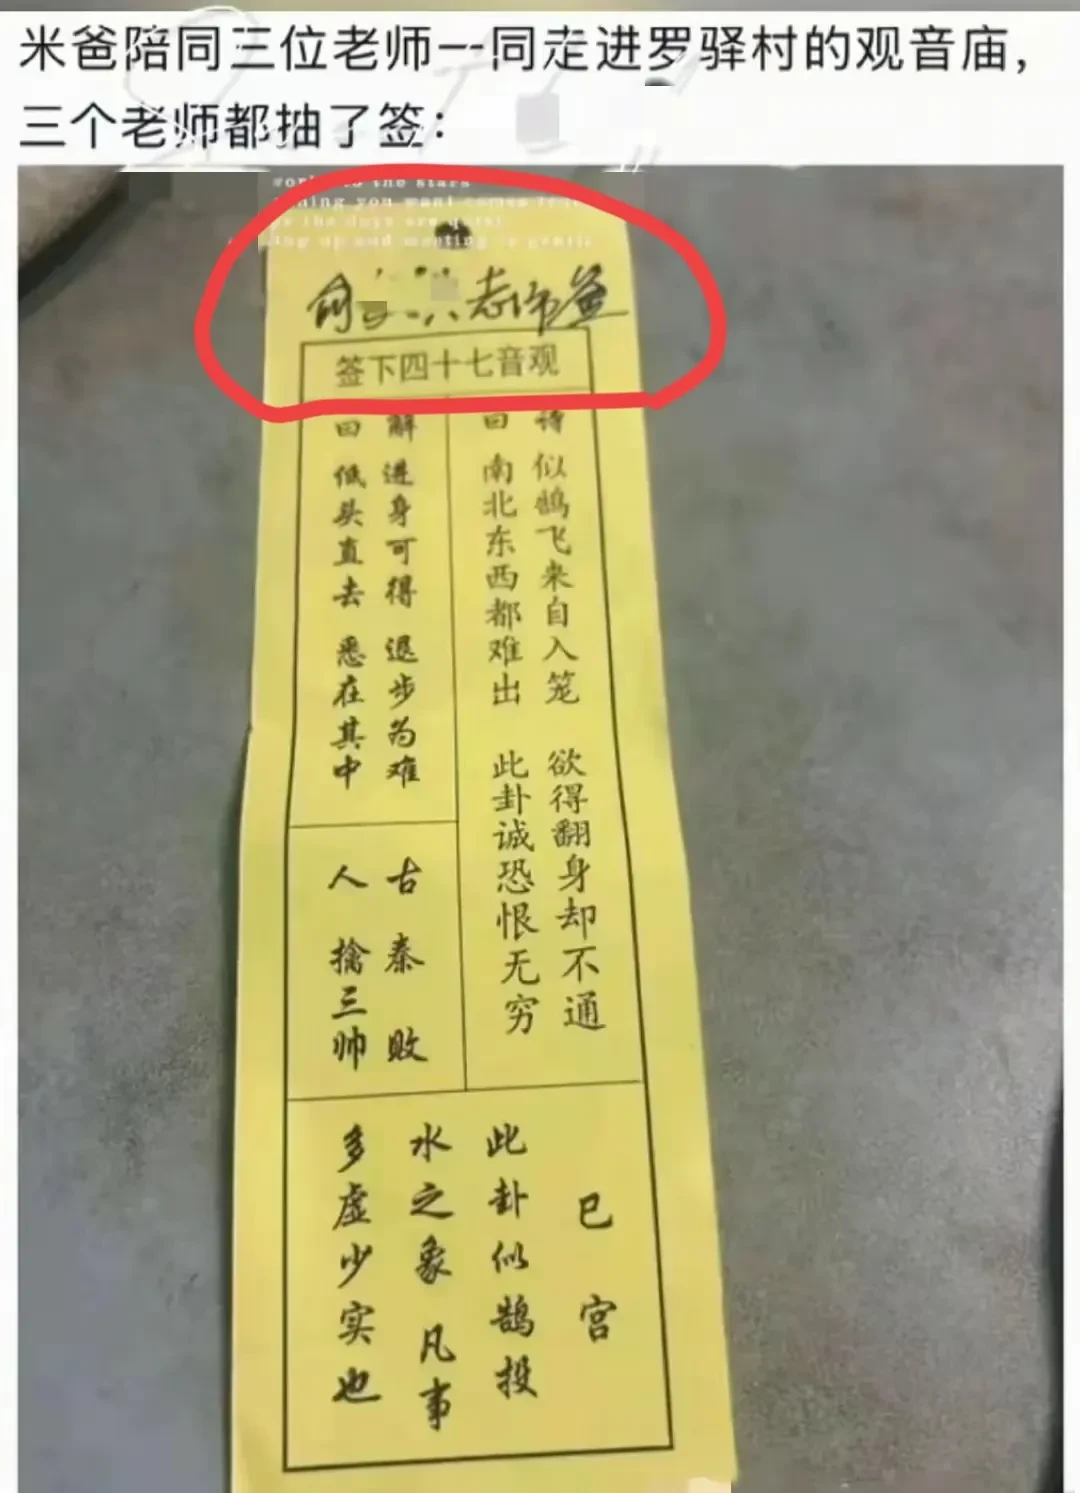 米爸陪同三位老师一同走进罗驿村的观音庙，
三个老师都抽了签：
to the stars
you want comes
the days are quiet
up and meeting is gentle
老师爸
签下四十七音观
诗曰
似鹄飞来自入笼
欲得翻身却不通
南北东西都难出
此卦诚恐恨无穷
解曰
进身可得
退步为难
低头直去
悉在其中
古人
秦败
擒三帅
巳宫
此卦似鹄投
水之象
凡事
多虚少实也